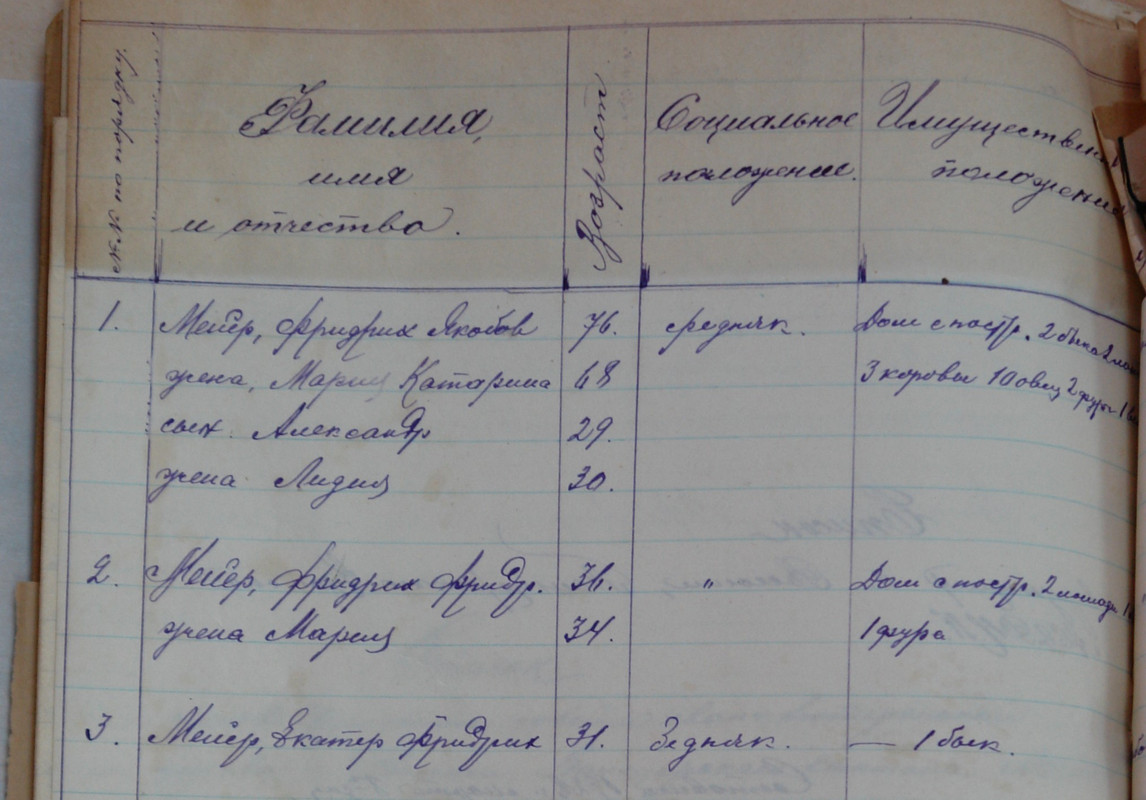 №№ по порядку.
Фамилия, имя и отчество.
Возраст
Социальное положение.
Имуществен положения
1. Мейер, Фридрих Якобов 76. средняк. Дом с постр. 2 быка 2 лош
жена, Мария Катарина 68 3 коровы 10 овец 2 фуры 1
сын. Александр 29.
жена Лидия 30.
2. Мейер, Фридрих Фридр. 36. " Дом с постр. 2 лошади 1
жена Мария 34. 1 фура
3. Мейер, Екатер Фридрих 31. Бедняк. — 1 бык.